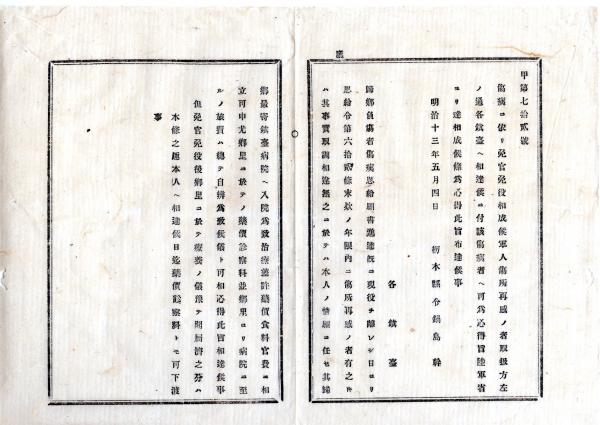 甲第七拾貳號
傷病ニ依リ免官免役相成候軍人傷所再感ノ者取扱方左
ノ通各鎮臺ヘ相達候ニ付該傷病者ヘ可爲心得旨陸軍省
ヨリ達相成候條爲心得此旨布達候事
明治十三年五月四日　栃木縣令鍋島幹
各鎮臺
歸郷負傷者傷病恩給願書進達既ニ現役ヲ離レシ日ヨリ
恩給令第六拾貳條末欵ノ年限內ニ傷所再感ノ者有之片
ハ其事實取調相違無之ニ於テハ本人ノ情願ニ任セ其歸
郷最寄鎮臺病院ヘ入院爲致治療差許藥價食料官費ニ相
立可申尤郷里ニ於テノ藥價診察料並郷里ヨリ病院ニ至
ルノ旅費ハ總テ自辨爲致候儀ト可相心得此旨相達候事
但免官免役後郷里ニ於テ療養ノ儀豫テ聞屆濟之分ハ
本條之趣本人ヘ相達候日迄藥價診察料トモ可下渡
事